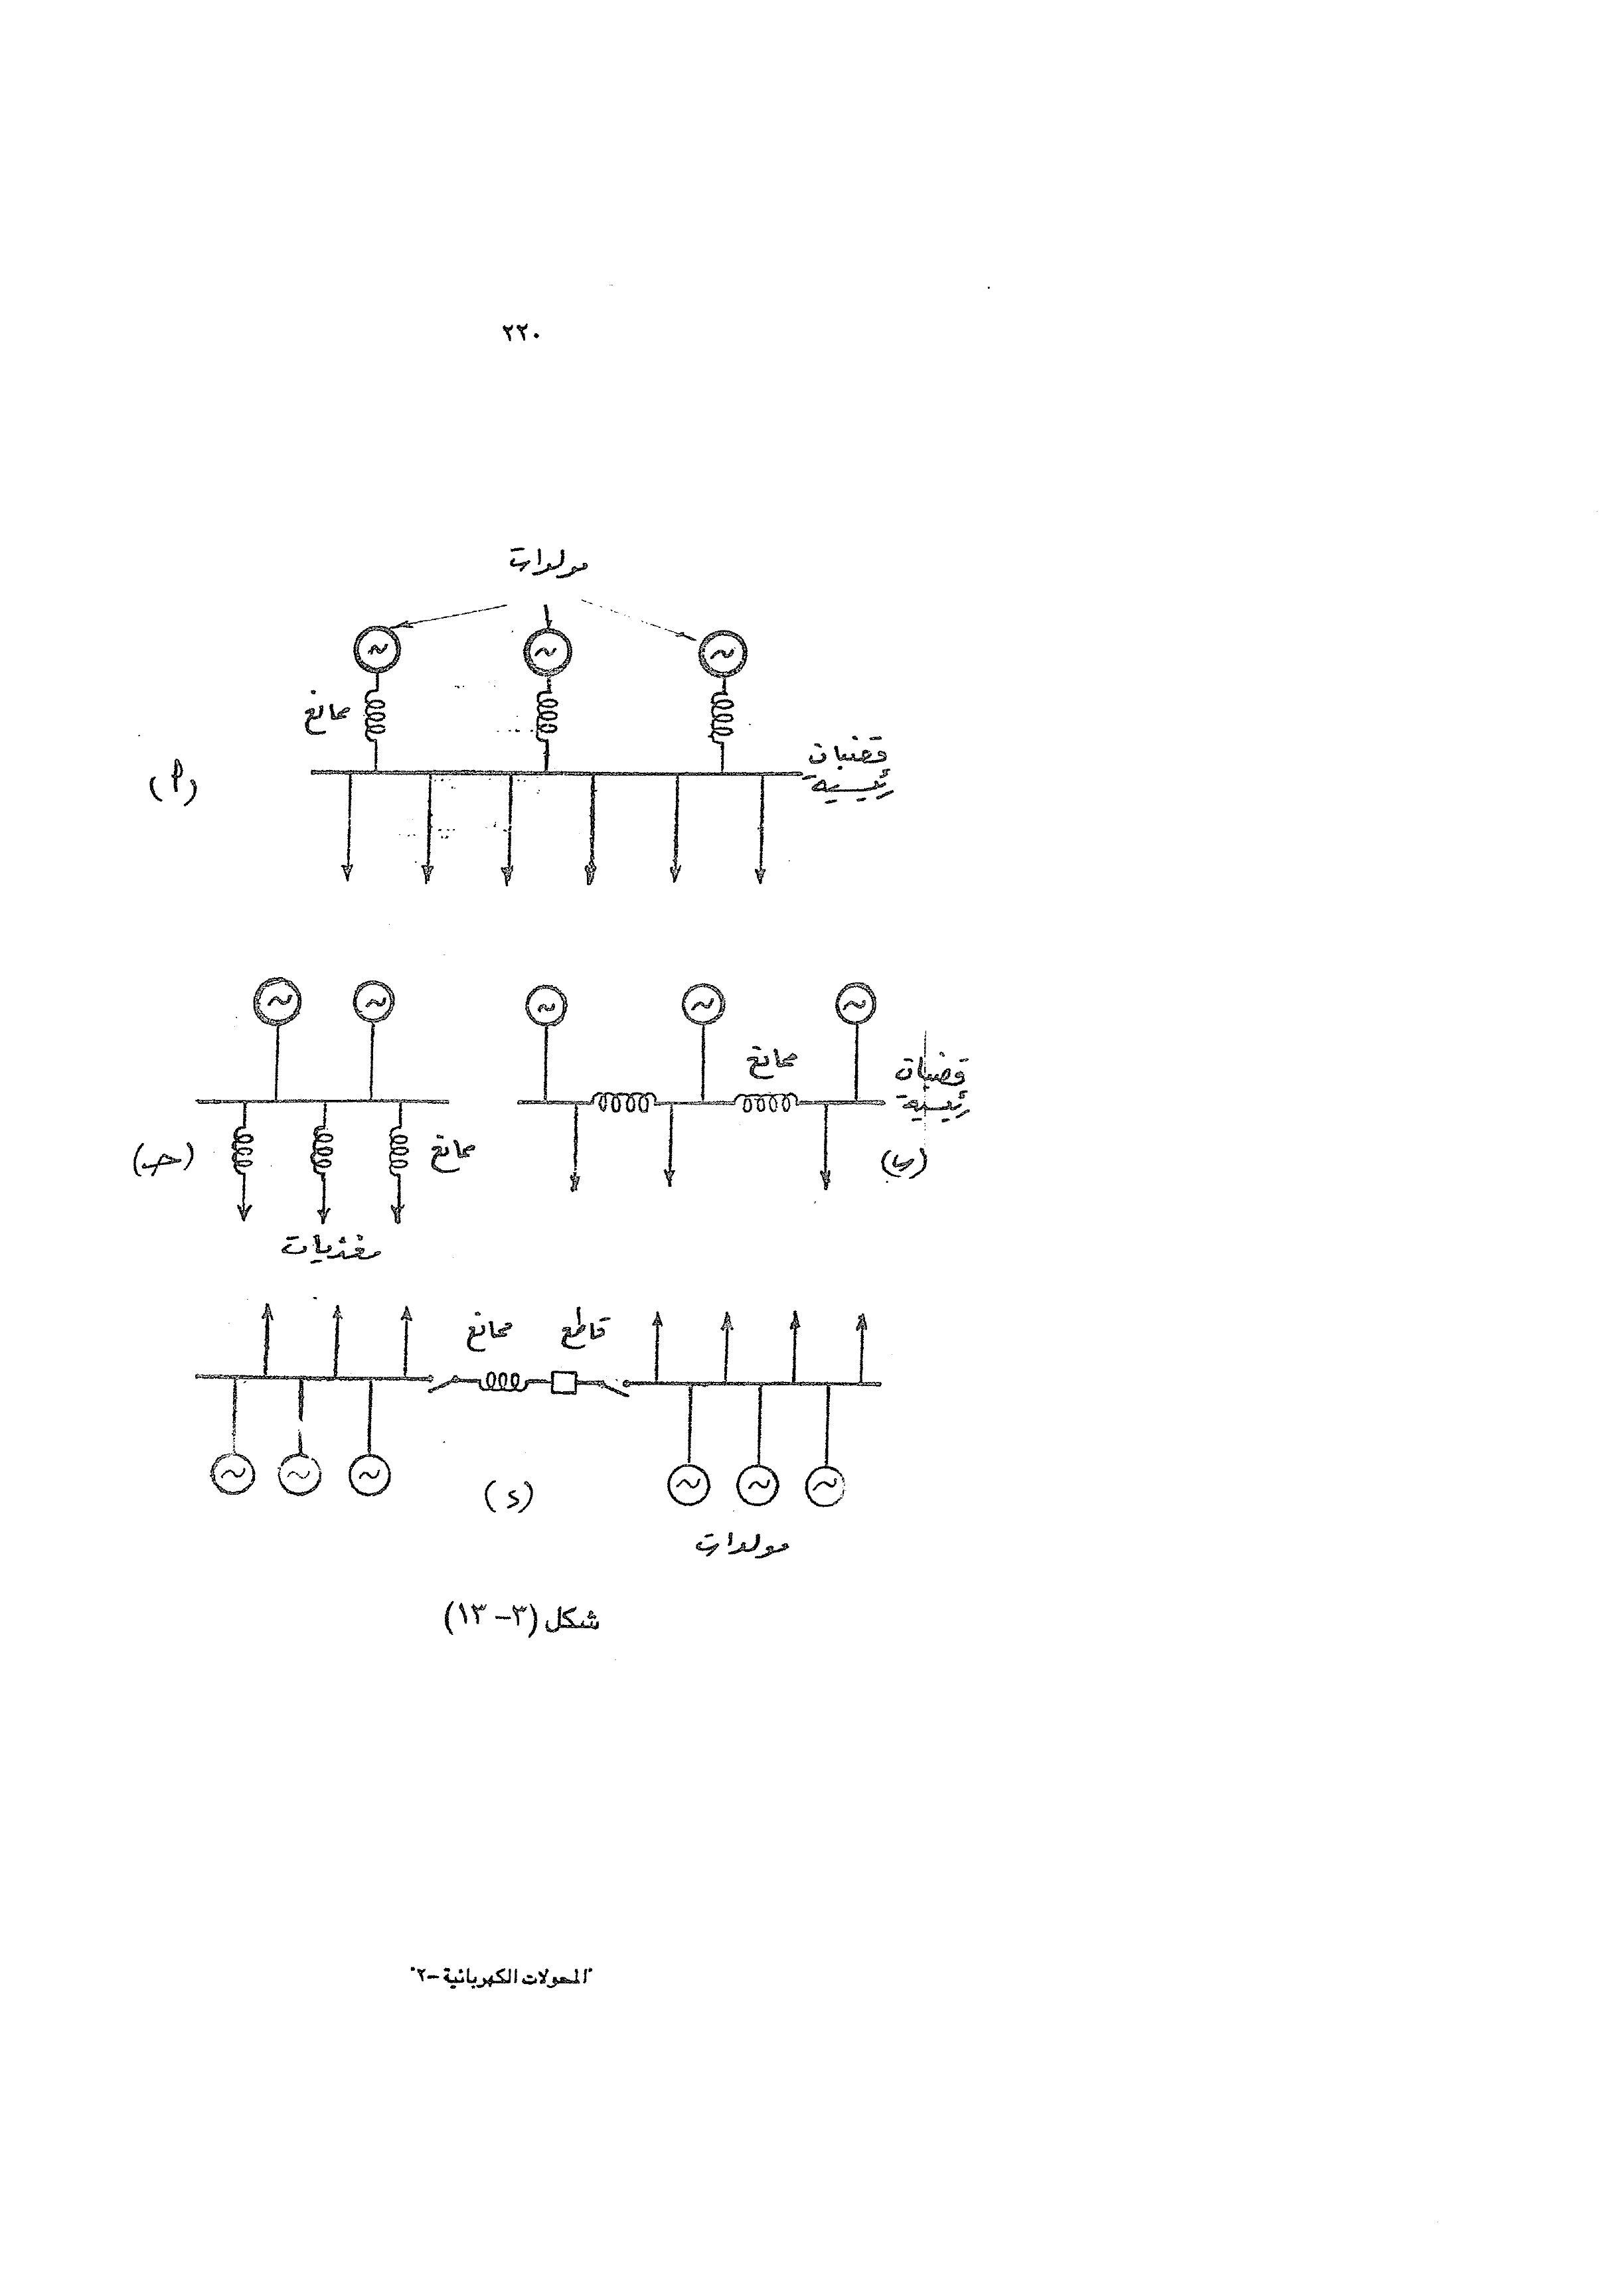 ٢٢٠
مولدات
ممانع
قضبان
رئيسية
(أ)
ممانع
قضبان
رئيسية
(ب)
ممانع
(حـ)
مغذيات
ممانع
قاطع
(د)
مولدات
شكل (٣-١٣)
"المحولات الكهربائية -٢"